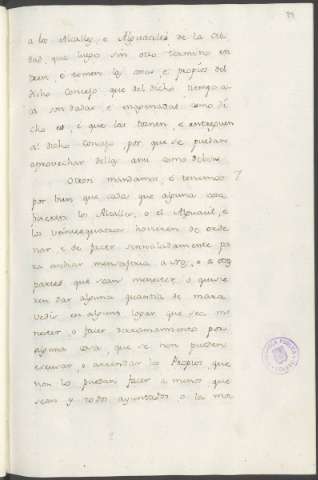 a los Alcalles, e Alguaciles de la Cib
dad, que luego sin otro termino en
tren, e tomen las cosas e propios del
dicho Concejo que del dicho tiempo a
ca son dadas e enagenadas como di
cho es, e que las tornen, e entreguen
al dicho Concejo, por que se puedan
aprovechar dellas ansi como debene
Otrosi mandamos, e tenemos
por bien que cada que alguna cosa
los Alcalles, o el Alguacil, e
los veinteequatro hovieren de orde
nar, e de facer sennaladamente pa
ra enviar mensageria a nos, o a otras
partes que sean menester o quisie
ren dar alguna quantia de mara
vedis en algund logar que sea me
nester, o facer derramamiento por
alguna cosa, que se non pueden
escusar, o arrendar los Propios, que
non lo puedan facer a menos que
sean y todos ayuntados o la ma